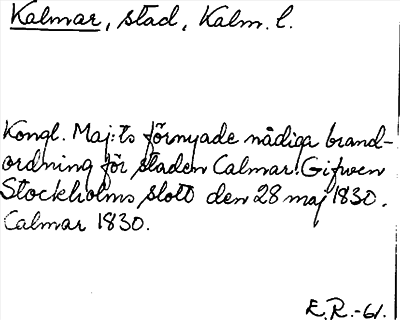 Kalmar, stad, Kalm. l.
Kongl. Maj:ts förnyade nådiga brand-
ordning för staden Calmar. Gifwen
Stockholms slott den 28 maj 1830.
Calmar 1830.
E.R.-61.